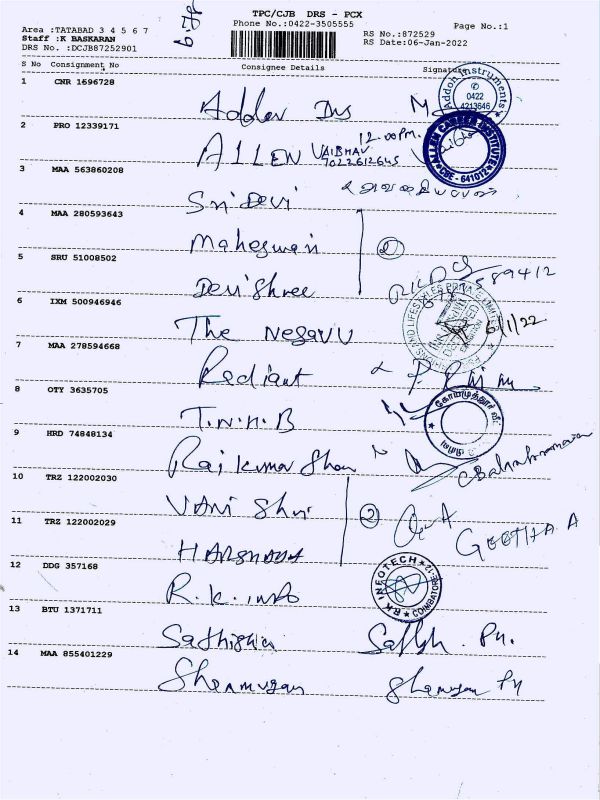 6-78
TPC/CJB DRS - PCX
Phone No.:0422-3505555
Page No.:1
Area :TATABAD 3 4 5 6 7
Staff :K BASKARAN
DRS No. :DCJB87252901
RS No.:872529
RS Date:06-Jan-2022
S No Consignment No Consignee Details Signature
1 CNR 1696728
Addoh Instruments
0422
4213646
2 PRO 12339171 ALLEN VAIBHAV 12.00PM.
7022612645
ALLEN CAREER INSTITUTE
CBE - 641012
3 MAA 563860208 Sri Devi
4 MAA 280593643 Maheswari 2
5 SRU 51008502 Devi Shree
6 IXM 500946946 The Negavu 6/1/22
7 MAA 278594668 Rediant
8 OTY 3635705 T.N.H.B
கோயமுத்தூர்
9 HRD 74848134 Raj Kumar Shan
10 TRZ 122002030 VANI Shri 2
11 TRZ 122002029 GEETHA A
12 DDG 357168 R.K. info
R K INFOTECH
COIMBATORE-12
13 BTU 1371711
14 MAA 855401229 Shanmugan